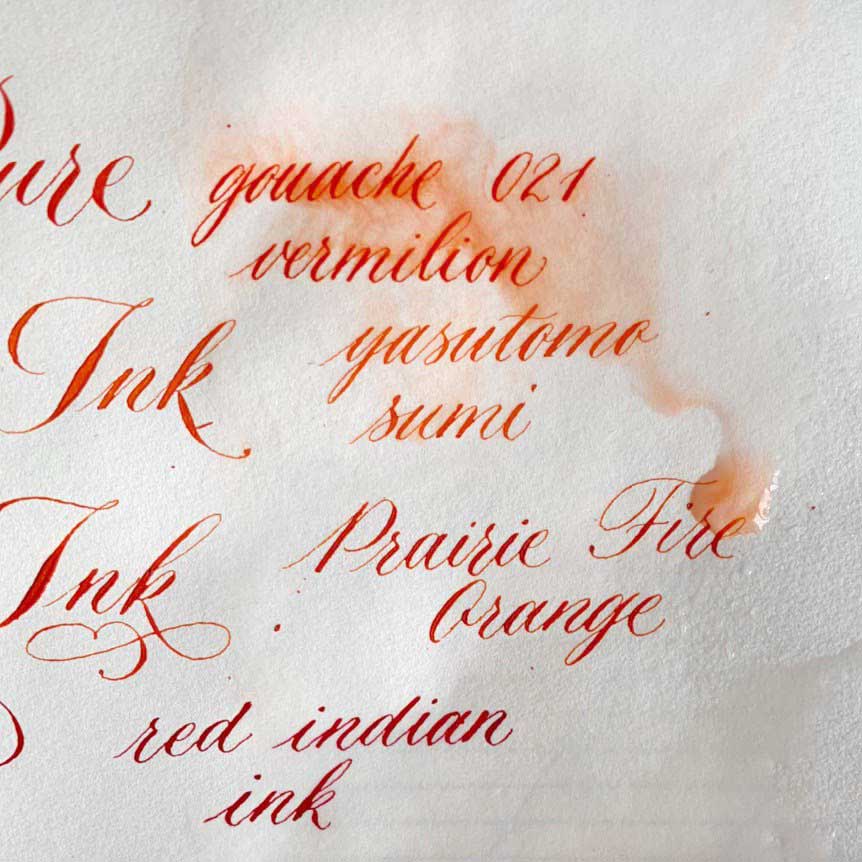 Pure gouache 021
vermilion
Ink yasutomo
sumi
Ink Prairie Fire
Orange
red indian
ink